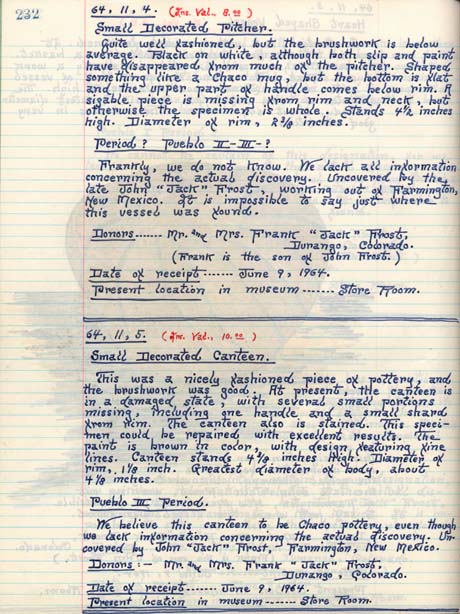 232
64, 11, 4. (Ins. Val., 8.00)
Small Decorated Pitcher.
Quite well fashioned, but the brushwork is below
average. Black on white, although both slip and paint
have disappeared from much of the pitcher. Shaped
something like a Chaco mug, but the bottom is flat
and the upper part of handle comes below rim. A
sigable piece is missing from rim and neck, but
otherwise the specimen is whole. Stands 4½ inches
high. Diameter of rim, 2⅞ inches.
Period? Pueblo II-III-?
Frankly, we do not know. We lack all information
concerning the actual discovery. Uncovered by the
late John "Jack" Frost, working out of Farmington,
New Mexico. It is impossible to say just where
this vessel was found.
Donors ....... Mr. and Mrs. Frank "Jack" Frost,
Durango, Colorado.
(Frank is the son of John Frost.)
Date of receipt ....... June 9, 1964.
Present location in museum ....... Store Room.
64, 11, 5. (Ins. Val., 10.00)
Small Decorated Canteen.
This was a nicely fashioned piece of pottery, and
the brushwork was good. At present, the canteen is
in a damaged state, with several small portions
missing, including one handle and a small shard
from rim. The canteen also is stained. This speci-
men could be repaired with excellent results. The
paint is brown in color, with design featuring fine
lines. Canteen stands 4⅛ inches high. Diameter of
rim, 1⅛ inch. Greatest diameter of body, about
4⅛ inches.
Pueblo III Period.
We believe this canteen to be Chaco pottery, even though
we lack information concerning the actual discovery. Un-
covered by John "Jack" Frost, Farmington, New Mexico.
Donors :— Mr. and Mrs. Frank "Jack" Frost,
Durango, Colorado.
Date of receipt ....... June 9, 1964.
Present location in museum ....... Store Room.